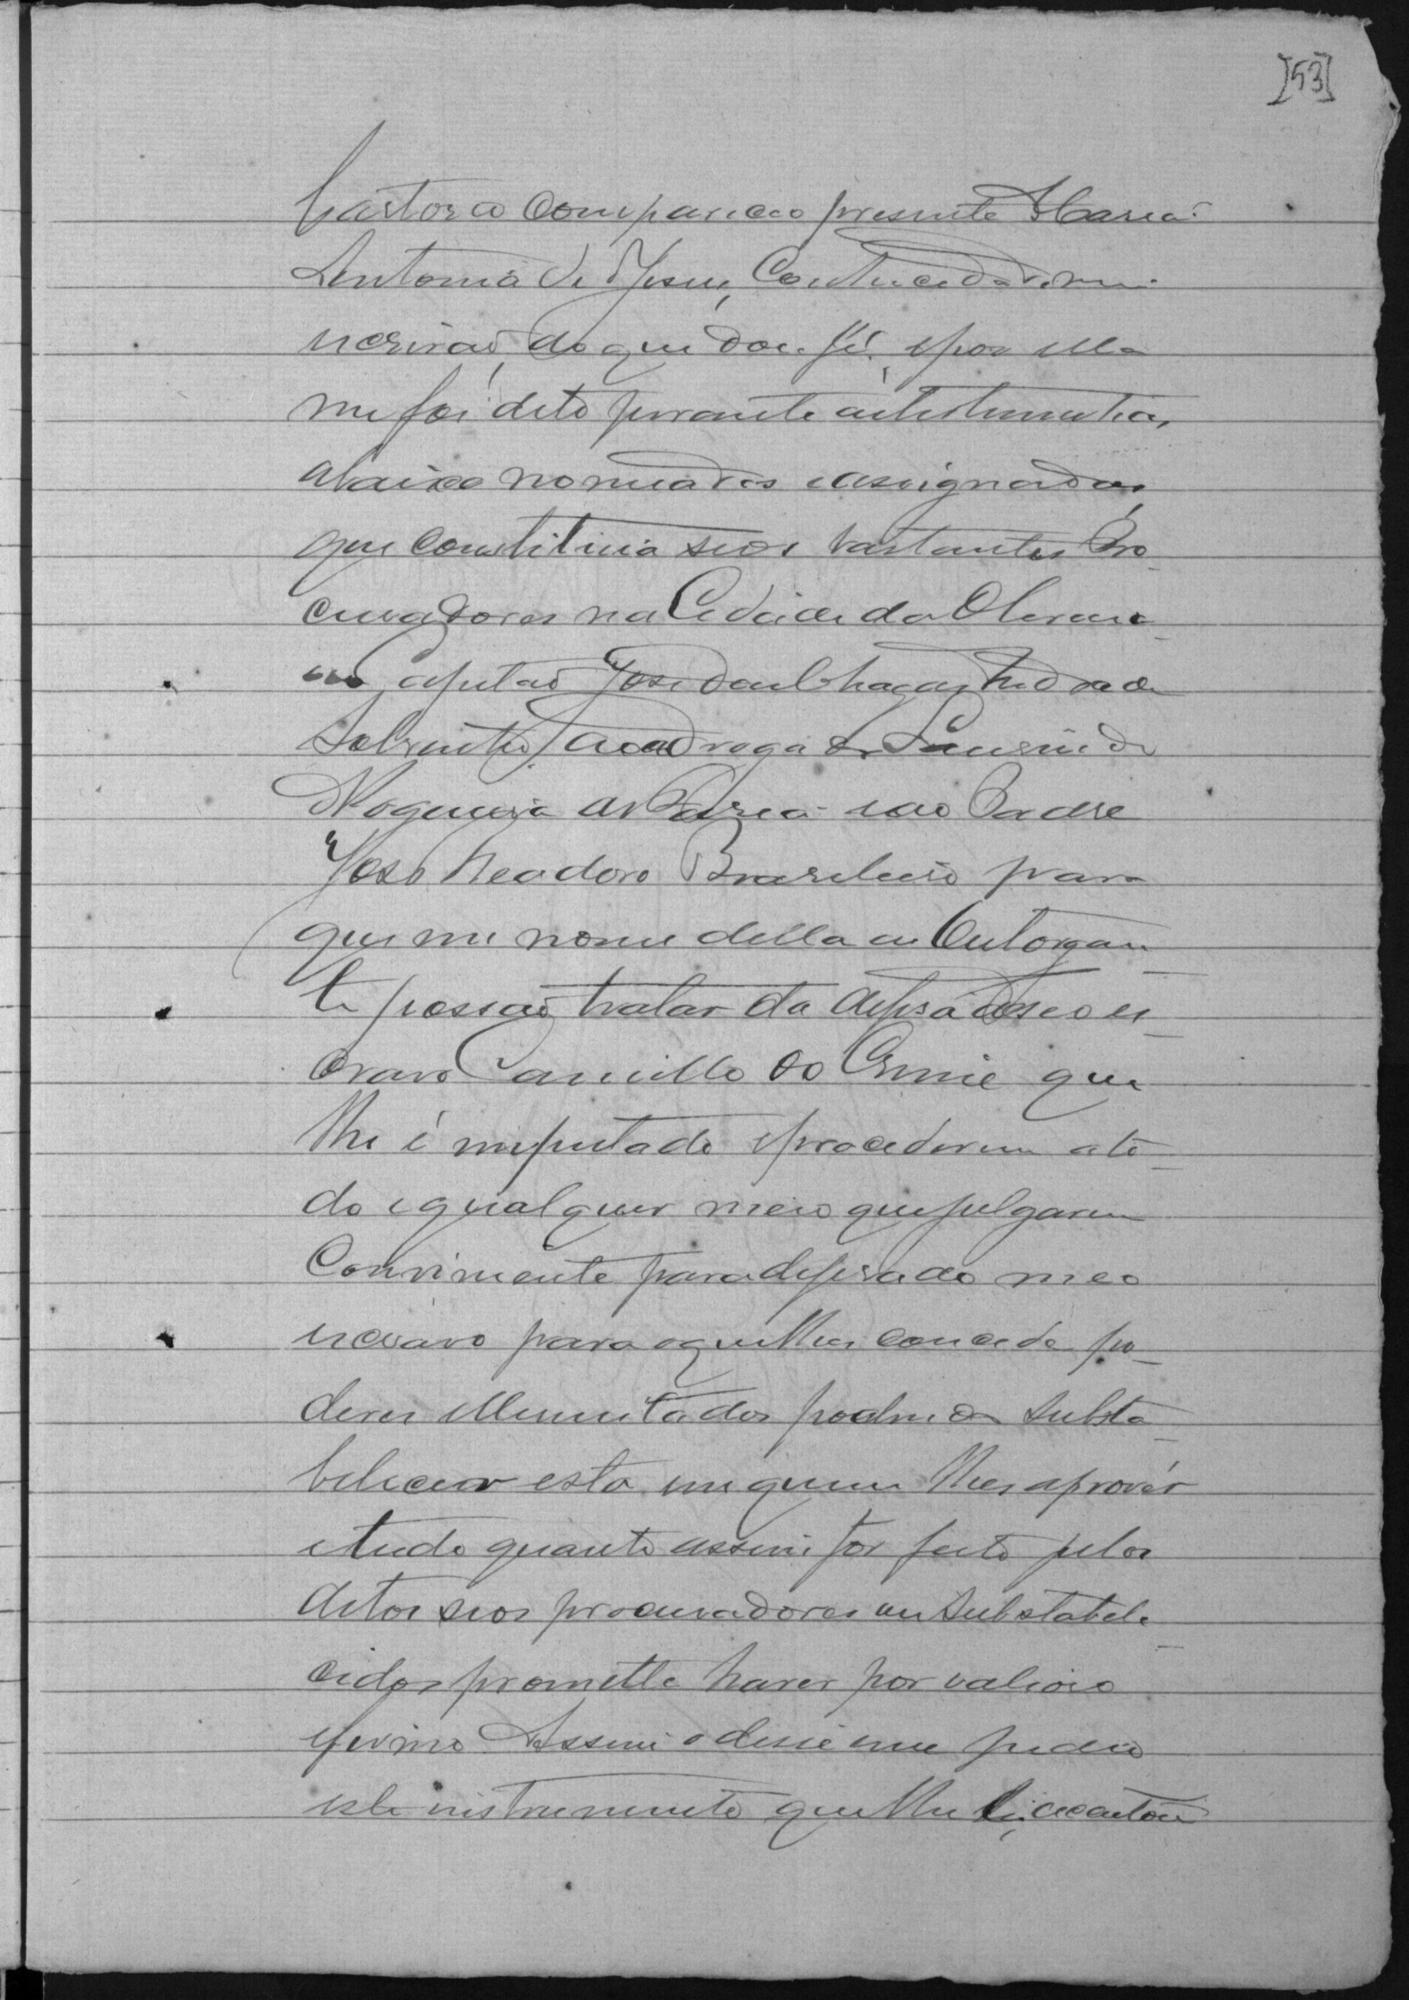 [53]
Cartorio compareceo presente Maria
Antonia de Jesus, Conhecida de mi
escrivaõ, do que dou fé, e por ella
me foi dito perante as testemunhas,
abaixo nomeadas e assignadas,
que constituia seos bastantes Pro-
curadores na Cidade da Oliveira
ao Capitaõ José das Chagas Andrade
Sobrinho, Advogado Lausindo
Nogueira e ao Padre
José Theodoro Brasileiro para
que em nome della a Outorgan-
te possaõ tratar da defesa de seo es-
cravo Camillo do Crime que
lhe é imputado e procederem a to-
do e qualquer meio que julgarem
Conviniente para defesa do meo
escravo para o que lhes concede po-
deres illimitados podendo substa-
belecer esta em quem lhes aprover
e tudo quanto assim for feito pelos
ditos seos procuradores ou substabele-
cidos promette haver por valioso
e firme. Assim o disse e me pedio
este instrumento que lhe li, aceitou